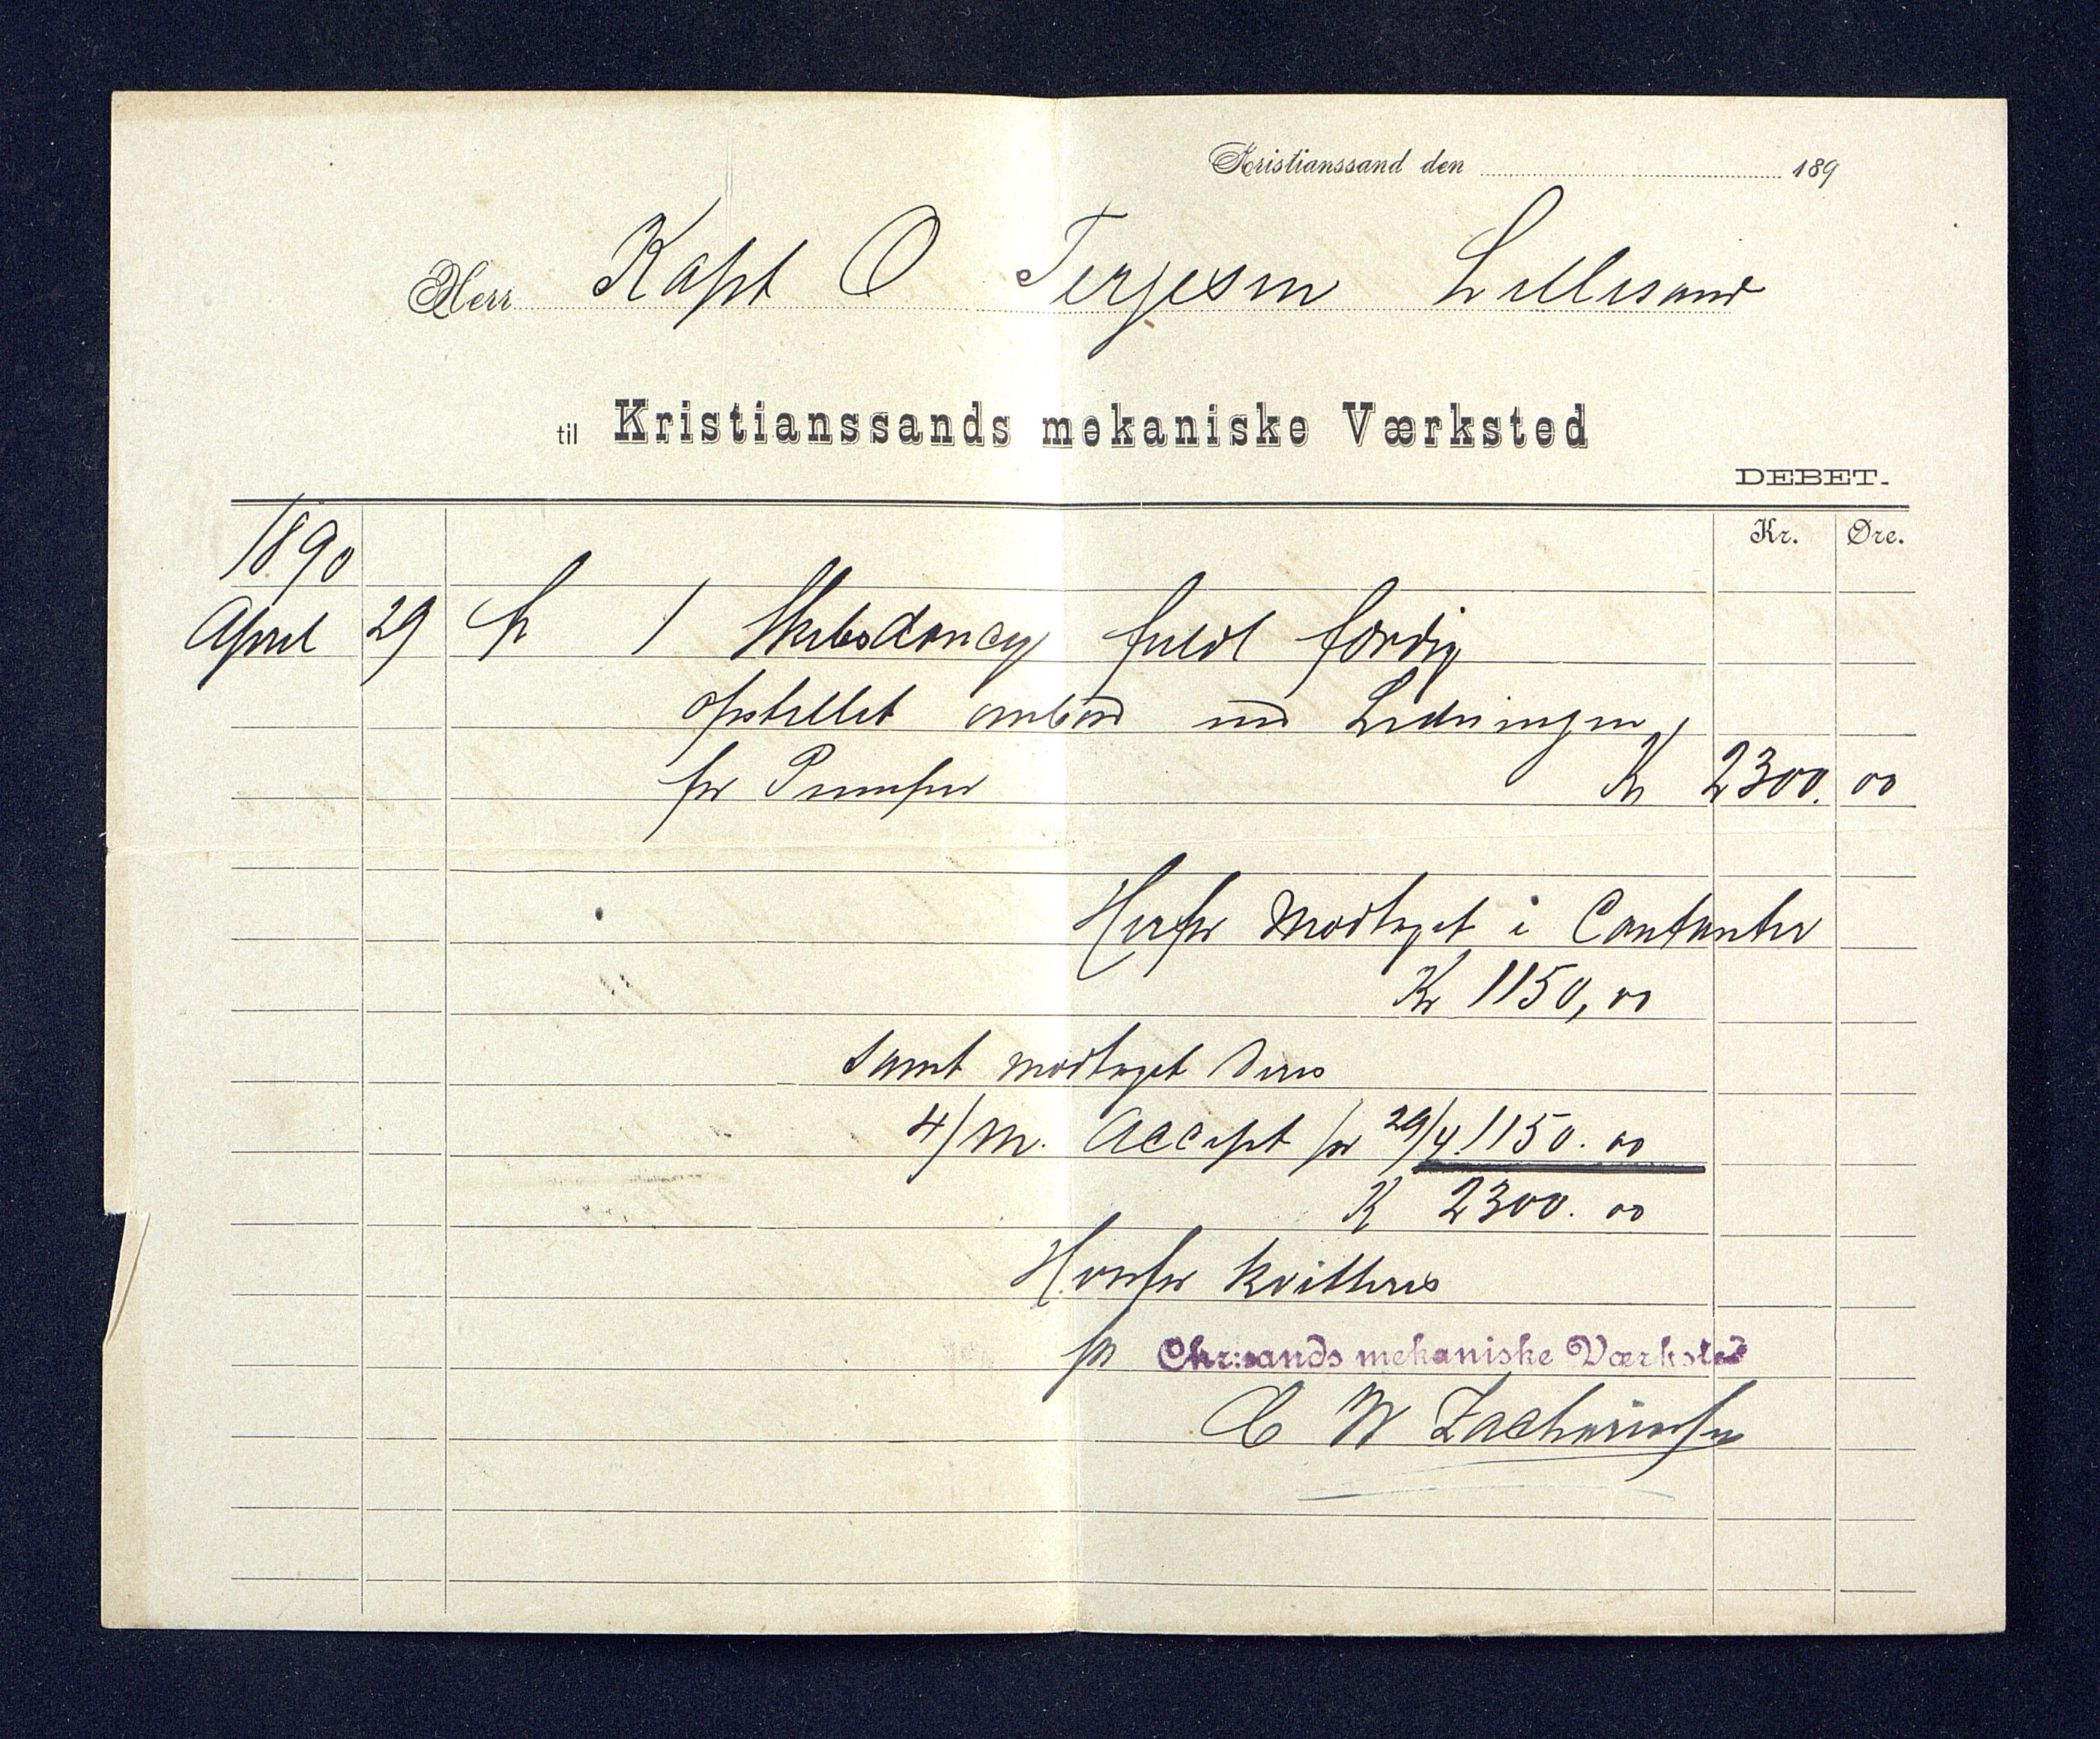 Kristianssand den 189
Herr Kapt O Terjesen Lillesand
til Kristianssands mekaniske Værksted
DEBET.
Kr. Øre.
1890
April 29 1 Skibsdoncey fuldt færdig
opstillet ombord med Ledningen
for Pumper Kr 2300. 00
Herfor Modtaget i Contanter
Kr 1150,00
samt modtaget Deres
4/m. Accept pr 29/4 1150. 00
Kr 2300. 00
Hvorfor kvitteres
pr Chr:sands mekaniske Værksted
C W Zachariassen